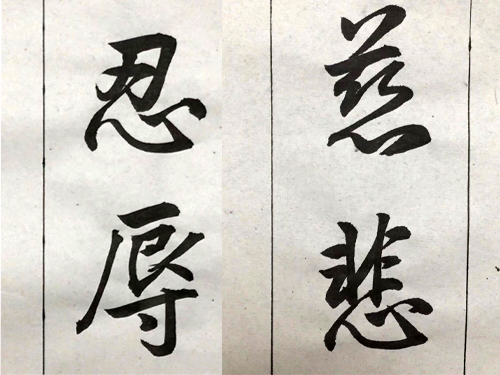 慈悲
忍辱